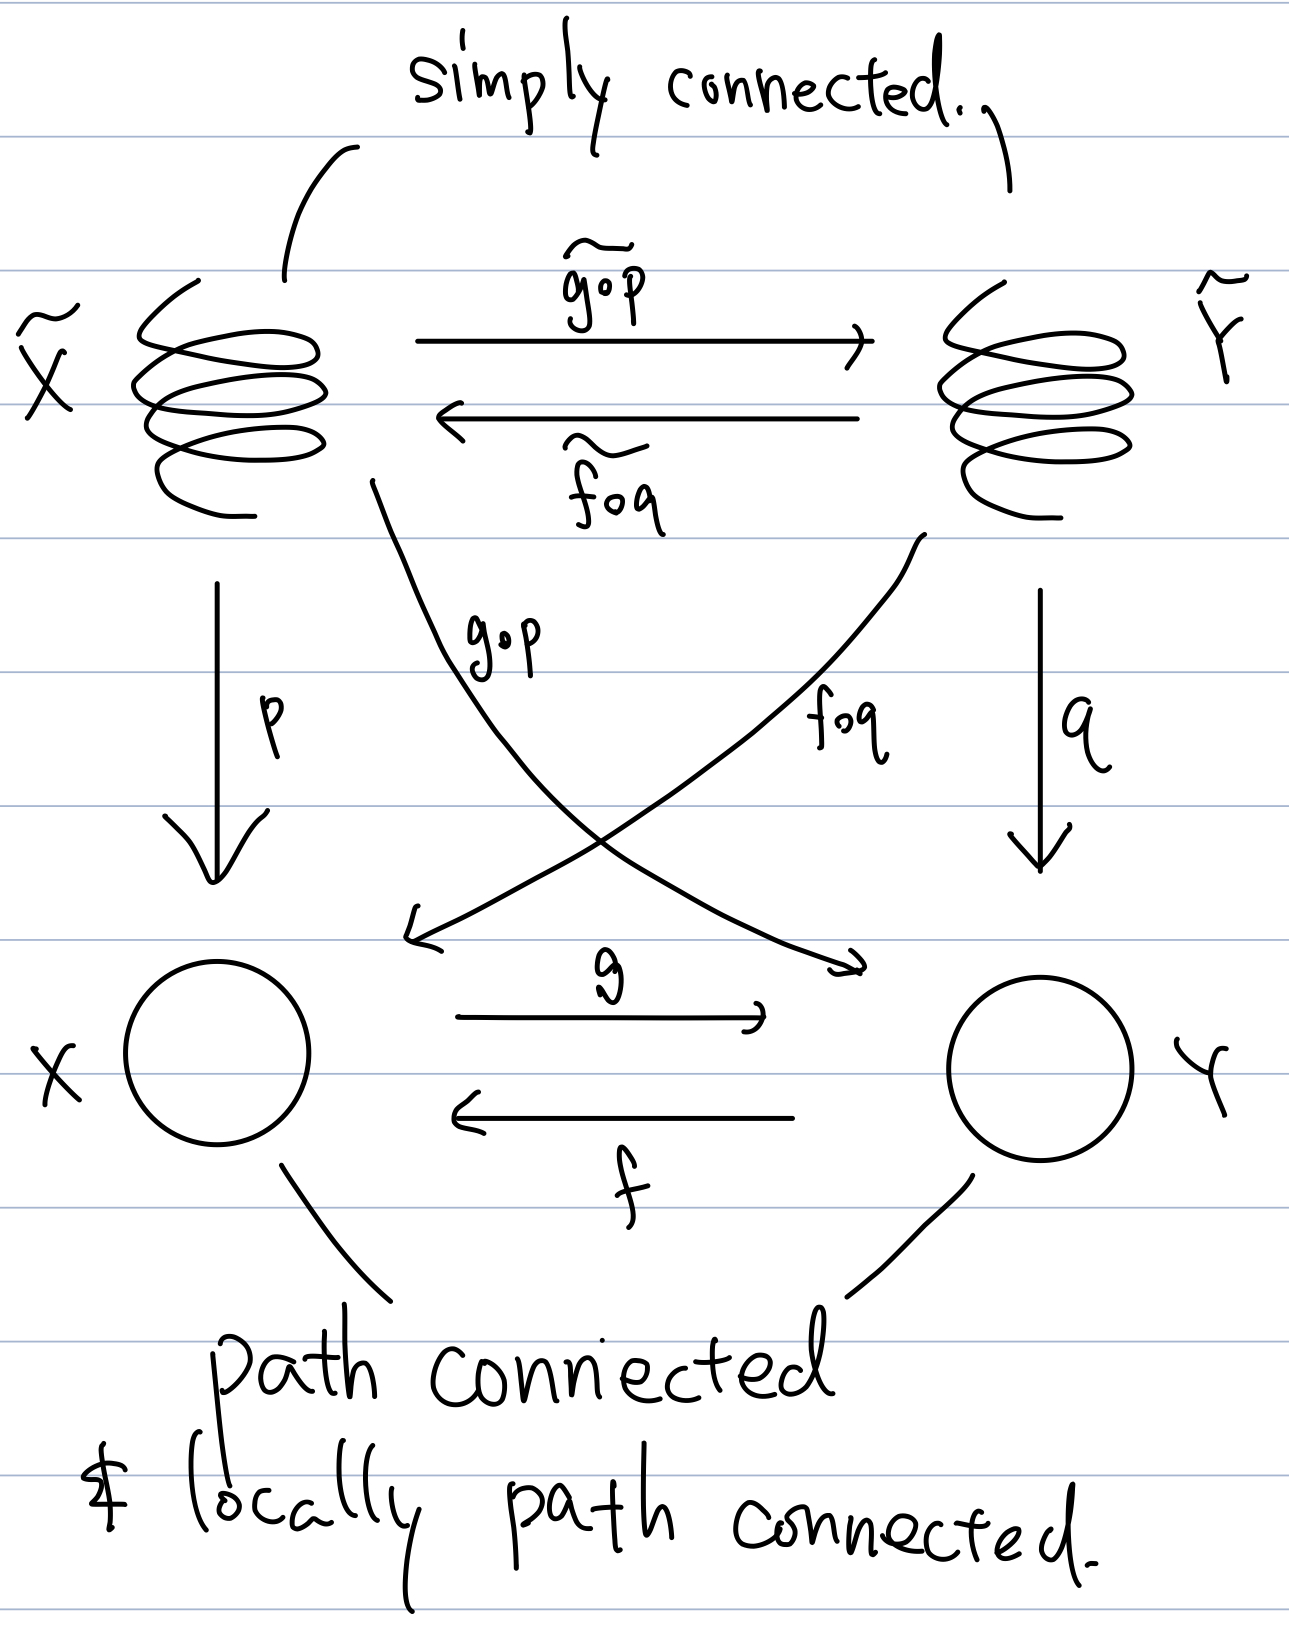 simply connected.
g∘p~
X̃ Ỹ
f∘q~
g∘p
p f∘q q
g
X Y
f
path connected
& locally path connected.